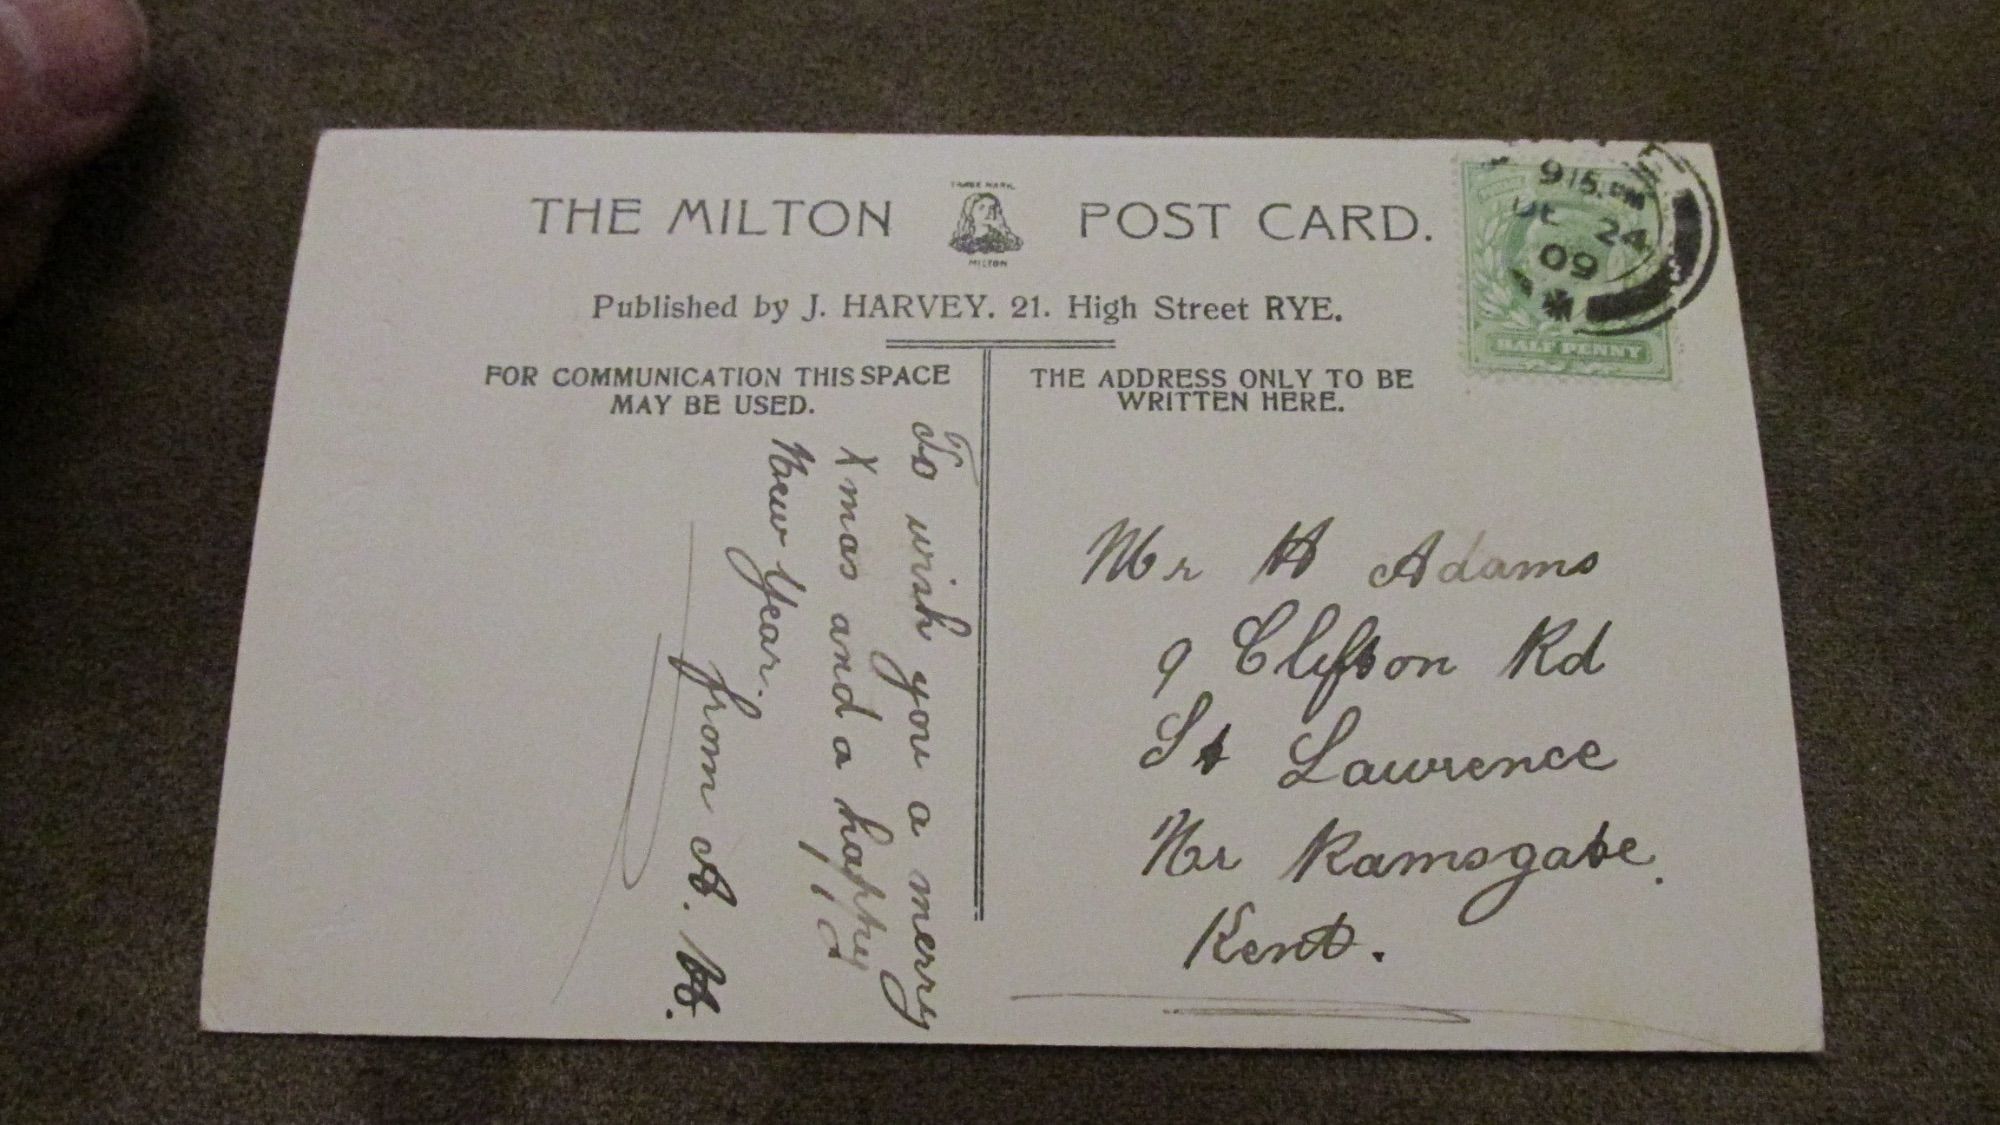 THE MILTON POST CARD.
TRADE MARK.
MILTON
Published by J. HARVEY. 21. High Street RYE.
FOR COMMUNICATION THIS SPACE
MAY BE USED.
To wish you a merry
Xmas and a happy
New Year.
from A. H.
THE ADDRESS ONLY TO BE
WRITTEN HERE.
Mr H Adams
9 Clifton Rd
St Lawrence
Nr Ramsgate.
Kent.
9 15. PM
DE 24
09
HALF PENNY